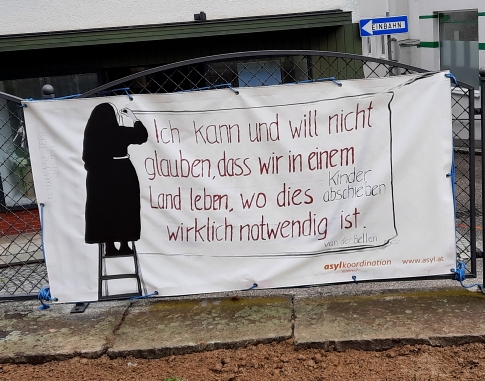 EINBAHN
Ich kann und will nicht
glauben, dass wir in einem
Land leben, wo dies Kinder abschieben
wirklich notwendig ist.
van der Bellen
asylkoordination
www.asyl.at